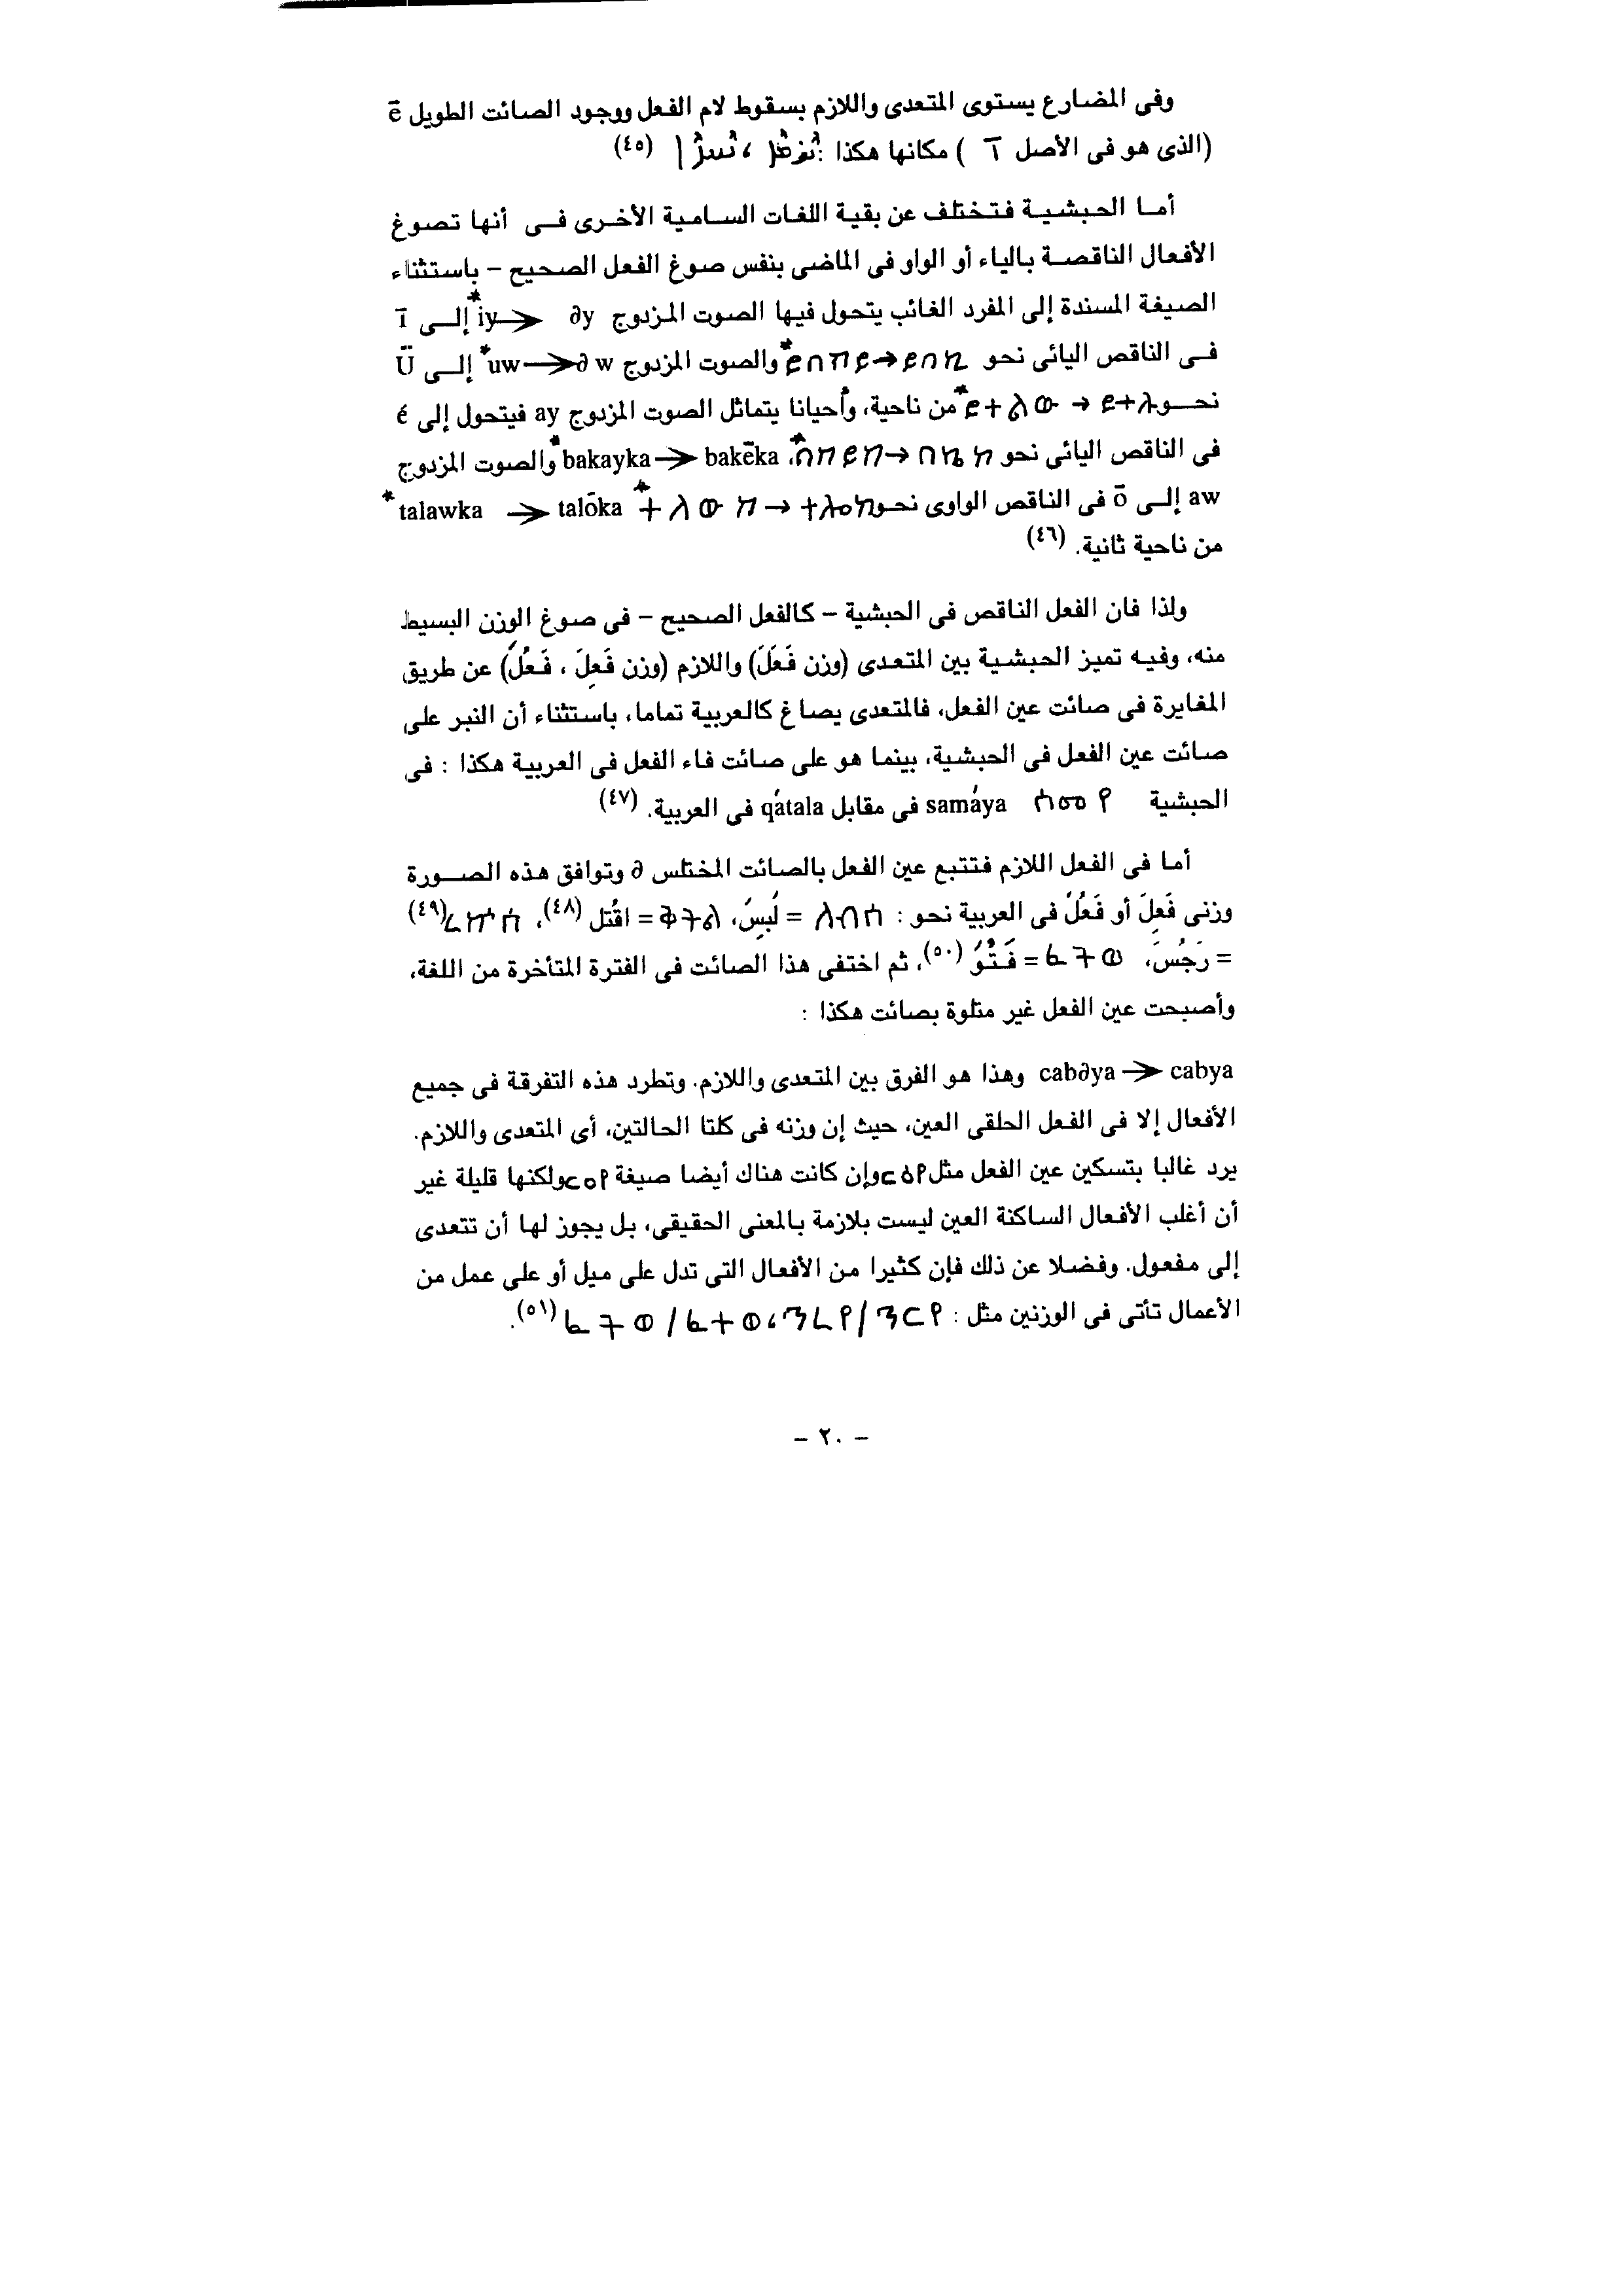 وفى المضارع يستوى المتعدى واللازم بسقوط لام الفعل ووجود الصائت الطويل ē
(الذى هو فى الأصل ī ) مكانها هكذا : (٤٥)
أما الحبشية فتختلف عن بقية اللغات السامية الأخرى فى أنها تصوغ
الأفعال الناقصة بالياء أو الواو فى الماضى بنفس صوغ الفعل الصحيح – باستثناء
الصيغة المسندة إلى المفرد الغائب يتحول فيها الصوت المزدوج ∂y ← iy* إلى ī
فى الناقص اليائى نحو ይበኪ ← ይበክይ* والصوت المزدوج uw* → ∂w إلى Ū
نحو ይትሉ ← ይትልው* من ناحية، وأحيانا يتماثل الصوت المزدوج ay فيتحول إلى é
فى الناقص اليائى نحو በከይከ* → በኬከ، bakayka* → bakēka والصوت المزدوج
aw إلى ō فى الناقص الواوى نحو ተለውከ* → ተሎከ talawka* → talōka
من ناحية ثانية. (٤٦)
ولذا فان الفعل الناقص فى الحبشية – كالفعل الصحيح – فى صوغ الوزن البسيط
منه، وفيه تميز الحبشية بين المتعدى (وزن فَعَلَ) واللازم (وزن فَعِلَ ، فَعُلَ) عن طريق
المغايرة فى صائت عين الفعل، فالمتعدى يصاغ كالعربية تماما، باستثناء أن النبر على
صائت عين الفعل فى الحبشية، بينما هو على صائت فاء الفعل فى العربية هكذا : فى
الحبشية ሰመየ samáya فى مقابل qátala فى العربية. (٤٧)
أما فى الفعل اللازم فتتبع عين الفعل بالصائت المختلس ∂ وتوافق هذه الصورة
وزنى فَعِلَ أو فَعُلَ فى العربية نحو : ለብሰ = لَبِسَ، ቅትል = اقُتل (٤٨)، ረኵሰ (٤٩)
= رَجُسَ، ፈትወ = فَتُوَ (٥٠)، ثم اختفى هذا الصائت فى الفترة المتأخرة من اللغة،
وأصبحت عين الفعل غير متلوة بصائت هكذا :
cab∂ya → cabya وهذا هو الفرق بين المتعدى واللازم. وتطرد هذه التفرقة فى جميع
الأفعال إلا فى الفعل الحلقى العين، حيث إن وزنه فى كلتا الحالتين، أى المتعدى واللازم.
يرد غالبا بتسكين عين الفعل مثل ርዕየ وإن كانت هناك أيضا صيغة ርዐየ ولكنها قليلة غير
أن أغلب الأفعال الساكنة العين ليست بلازمة بالمعنى الحقيقى، بل يجوز لها أن تتعدى
إلى مفعول. وفضلا عن ذلك فإن كثيرا من الأفعال التى تدل على ميل أو على عمل من
الأعمال تأتى فى الوزنين مثل : ኀርየ/ኀረየ، ፈተወ/ፈትወ (٥١).
– ٢٠ –